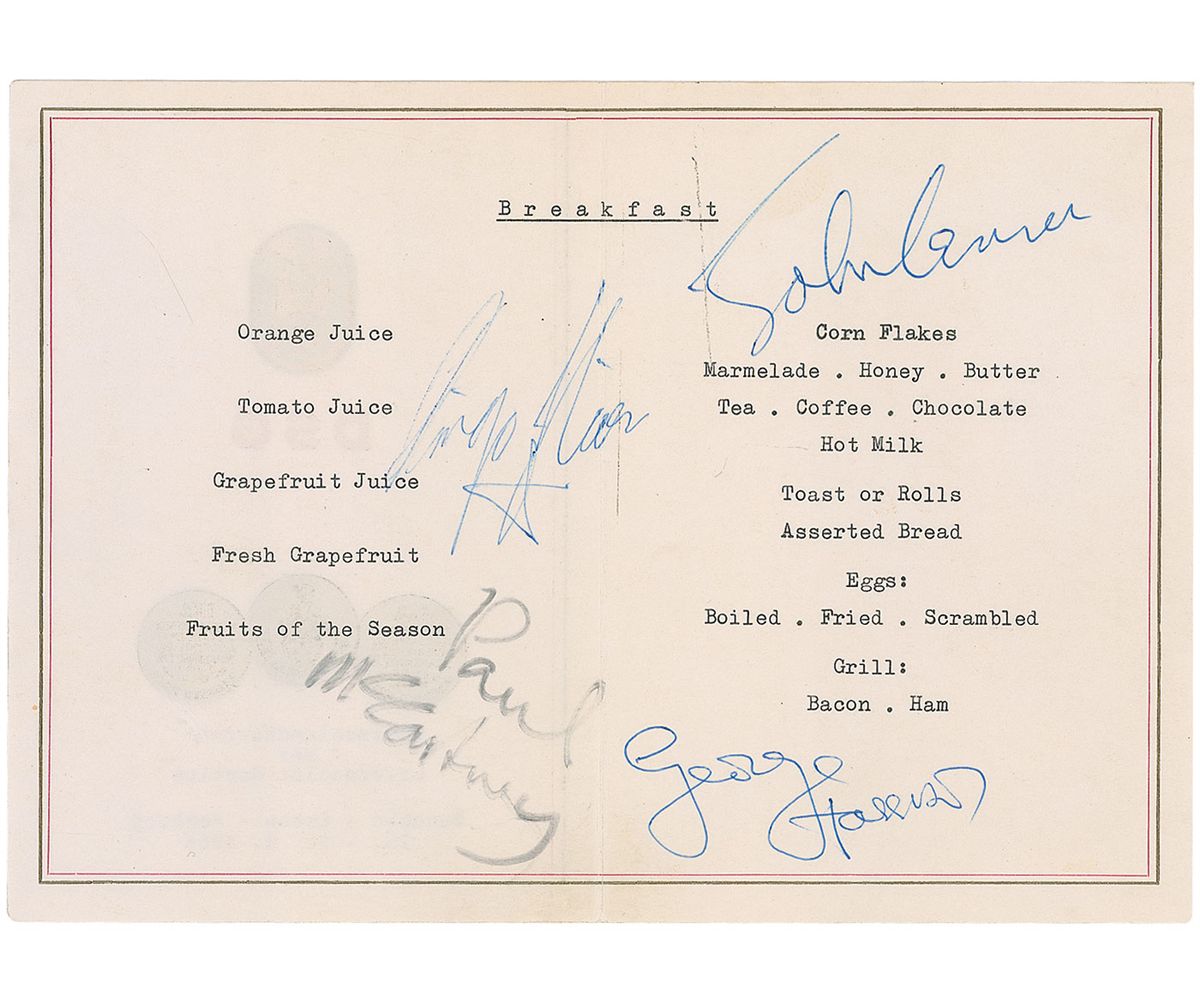 Breakfast
Orange Juice
Tomato Juice
Grapefruit Juice
Fresh Grapefruit
Fruits of the Season
John Lennon
Corn Flakes
Marmelade . Honey . Butter
Tea . Coffee . Chocolate
Hot Milk
Toast or Rolls
Asserted Bread
Eggs:
Boiled . Fried . Scrambled
Grill:
Bacon . Ham
Ringo Starr
Paul
McCartney
George
Harrison